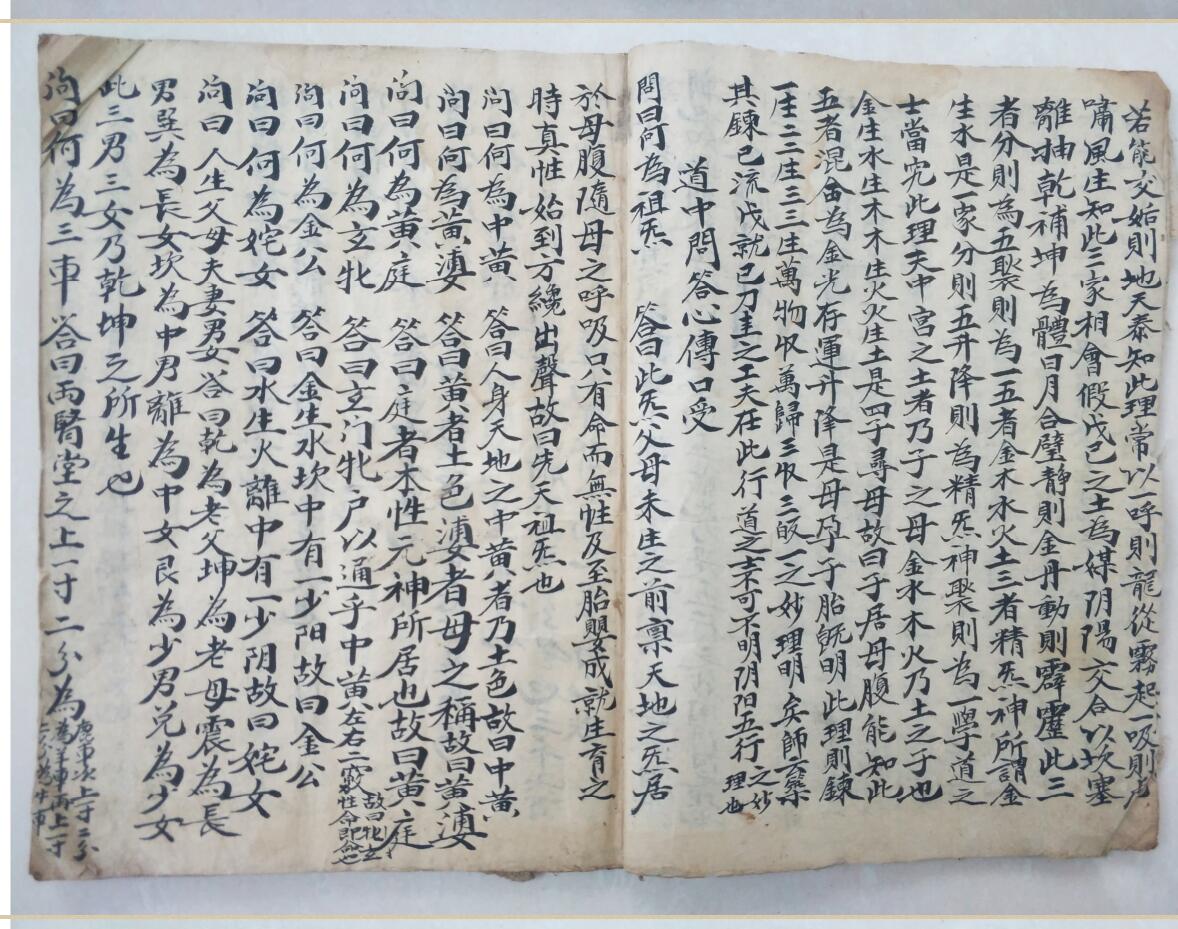 若能交姤則地天泰知此理常以一呼則龍從霧起一吸則虎
嘯風生知此三家相會假戊己之土為媒阴陽交合以坎塞
離抽乾補坤為體日月合璧静則金丹動則霹靂此三
者分則為五聚則為一五者金木水火土三者精炁神所謂金
生水是一家分則五升降則為精炁神聚則為一學道之
士當究此理天中宫之土者乃子之母金水木火乃土之子也
金生水生木木生火火生土是四子尋母故曰子居母腹能知此
五者混合為金光存運升降是母孕子胎既明此理則鍊
一生二生三三生萬物収萬歸三収三皈一之妙理明矣師云藥
其鍊己流戊就己刀圭之工夫在此行道之士不可不明阴阳五行之妙理也
道中問答心傳口受
問曰何為祖炁 答曰此炁父母未生之前禀天地之炁居
於母腹隨母之呼吸只有命而無性及至胎嬰成就生育之
時真性始到方纔出聲故曰先天祖炁也
问曰何為中黄 答曰人身天地之中黄者乃土色故曰中黄
问曰何為黄婆 答曰黄者土色婆者母之稱故曰黄婆
问曰何為黄庭 答曰庭者本性元神所居也故曰黄庭
问曰何為玄牝 答曰玄门牝户以通乎中黄左右二竅性命即命也故曰牝玄
问曰何為金公 答曰金生水坎中有一少阳故曰金公
问曰何為姹女 答曰水生火離中有一少阴故曰姹女
问曰人生父母夫妻男女答曰乾為老父坤為老母震為長
男巽為長女坎為中男離為中女艮為少男兑為少女
此三男三女乃乾坤之所生也
问曰何為三車 答曰两腎堂之上一寸二分為鹿車次上一寸二分為羊車再上一寸二分為牛車